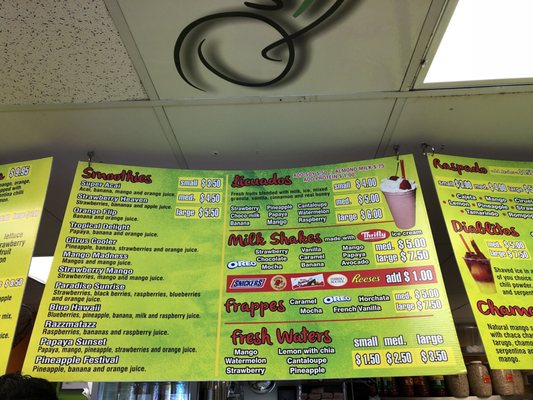 $9.95
mango, orange,
lettuce
strawberry
fruit
mix.
Smoothies
small $3.50
med. $4.50
large $5.50
Super Acai
Acai, banana, mango and orange juice.
Strawberry Heaven
Strawberries, banana and apple juice.
Orange Flip
Banana and orange juice.
Tropical Delight
Papaya, banana and orange juice.
Citrus Cooler
Pineapple, banana, strawberries and orange juice.
Mango Madness
Mango and mango juice.
Strawberry Mango
Strawberries, mango and mango juice.
Paradise Sunrise
Strawberries, black berries, raspberries, blueberries
and orange juice.
Blue Hawaii
Blueberries, pineapple, banana, milk and raspberry juice.
Razzmatazz
Raspberries, bananas and raspberry juice.
Papaya Sunset
Papaya, mango, pineapple, strawberries and orange juice.
Pineapple Festival
Pineapple, banana and orange juice.
Licuados
ALMOND MILK $.75
Fresh fruits blended with milk, ice, mixed
granola, vanilla, cinnamon and real honey
Strawberry
Choco milk
Banana
Pineapple
Papaya
Mango
Cantaloupe
Watermelon
Raspberry
small $4.00
med. $5.00
large $6.00
Milk Shakes made with Thrifty ice cream
Strawberry
OREO
Chocolate
Mocha
Vanilla
Caramel
Banana
Mango
Papaya
Avocado
med. $5.00
large $7.50
SNICKERS
Reese's
add $1.00
Frappes
Caramel
Mocha
OREO
Horchata
French Vanilla
med. $5.00
large $7.50
Fresh Waters
Mango
Watermelon
Strawberry
Lemon with chia
Cantaloupe
Pineapple
small med. large
$1.50 $2.50 $3.50
Raspado
small $3.00 med. $4.00 large
Galeta
Limon
Tamarindo
Mango
Coco
Rompope
Diablitos
Shaved ice
of you choice,
chili powder,
and serpentina
Chama
Natural mango
with chaca chaca
tarugo, chamoy
serpentina and
mango